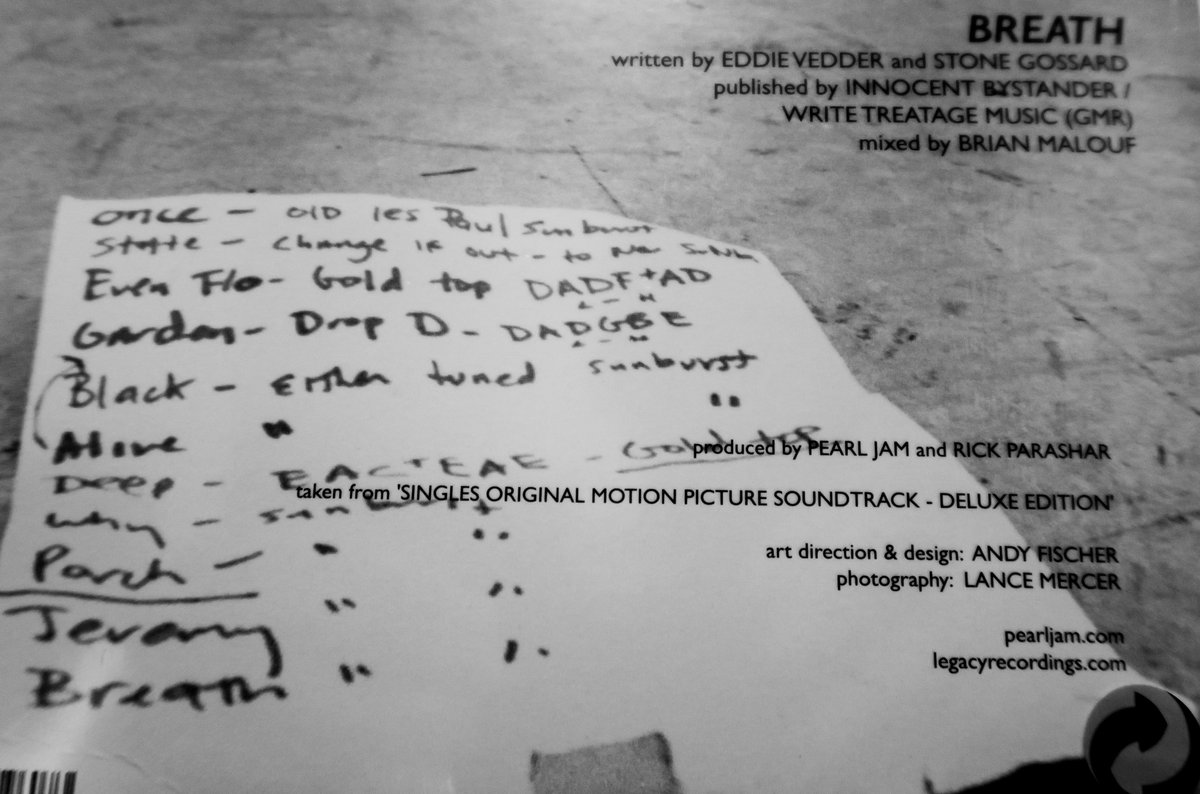 BREATH
written by EDDIE VEDDER and STONE GOSSARD
published by INNOCENT BYSTANDER /
WRITE TREATAGE MUSIC (GMR)
mixed by BRIAN MALOUF
once - old les Paul Sunburst
State - change if out - to
Even Flo - Gold top DADF+AD
Garden - Drop D - DADGBE
Black - tuned sunburst
Alive " "
Deep - - Gold top
why - sunburst
Porch - " "
Jeremy " "
Breath " "
produced by PEARL JAM and RICK PARASHAR
taken from 'SINGLES ORIGINAL MOTION PICTURE SOUNDTRACK - DELUXE EDITION'
art direction & design: ANDY FISCHER
photography: LANCE MERCER
pearljam.com
legacyrecordings.com